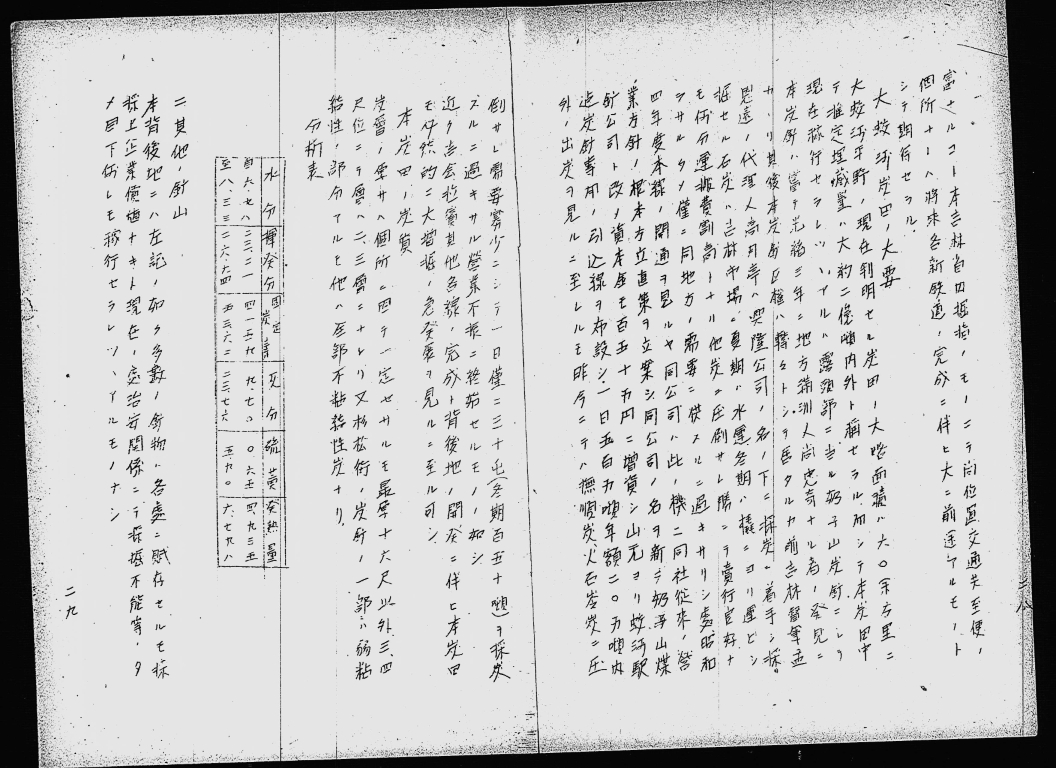 富ナルコト本吉林省内掘指ノモノニテ尚位置交通共至便ノ
個所ナレハ將来各新鉄道ノ完成ニ伴ヒ大ニ前途アルモノト
シテ期待セラル
大蛟河炭田ノ大要
大蛟河平野ノ現在判明セル炭田ノ大略面積ハ六〇余方里ニ
テ推定埋蔵量ハ大約二億噸内外ト稱セラル而シテ本炭田中
現在稼行セラレツヽアルハ露頭部ニ当ル奶子山炭砿ニシテ
本炭砿ハ當テ光緒三年ニ地方満洲人尚忠奇ナル者ノ発見ニ
カヽリ其後本炭砿区権ハ轉々トシテ居タルカ前吉林督軍孟
恩遠ノ代理人高月亭ハ興隆公司ノ名ノ下ニ採炭ニ着手シ採
掘セル石炭ハ吉林市場ニ夏期ハ水運冬期ハ橇ニヨリ運ビシ
モ何分運搬費割高トナリ他炭ニ圧倒サレ勝ニテ賣行良好ナ
ラサルタメ僅ニ同地方ノ需要ニ供スルニ過キサリシ處昭和
四年度本線ノ開通ヲ見ルヤ同公司ハ此ノ機ニ同社従来ノ營
業方針ノ根本方立直策ヲ立案シ同公司ノ名ヲ新ニ奶子山煤
砿公司ト改メ資本金モ百五十万円ニ增資シ山元ヨリ蛟河駅
迠炭砿専用ノ引込線ヲ布設シ一日五百力噸年額二〇万噸内
外ノ出炭ヲ見ルニ至レルモ昨今ニテハ撫順炭火石岺炭ニ圧
二八
倒サレ需要寡少ニシテ一日僅ニ三十屯(冬期百五十噸)ヲ採炭
スルニ過キサル營業不振ニ終始セルモノノ如シ
近ク吉会拉賓其他各線ノ完成ト背後地ノ開発ニ伴ヒ本炭田
モ必然的ニ大増掘ノ急発展ヲ見ルニ至ル可シ
本炭田ノ炭質
炭層ノ厚サハ個所ニ因テ一定セサルモ最厚十六尺以外三、四
尺位ニテ層ハ二、三層ニナレリ又杉松街ノ炭砿ノ一部ハ弱粘
結性ノ部分アルモ他ハ全部不粘結性炭ナリ
分析表
水分 揮発分 固定炭素 灰分 硫黄 発熱量
自 六・七八 二三・二一 四一・三九 九・七〇 〇・六五 四、九三五
至 八・三三 二六・六四 五三・六二 二三・七六 五・九〇 六、七九八
二 其他ノ砿山
本背後地ニハ左記ノ如ク多數ノ砿物ハ各處ニ賦存セルモ採
採上企業價値ナキト現在ノ處治安関係ニテ採掘不能等ノタ
メ目下何レモ稼行セラレツヽアルモノナシ
二九